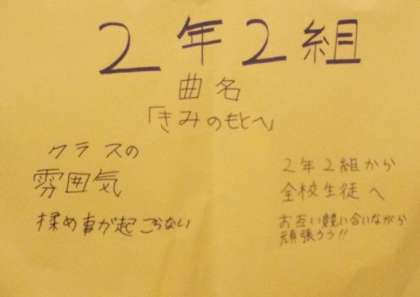 2年2組
曲名
「きみのもとへ」
クラスの
雰囲気
揉め事が起こらない
2年2組から
全校生徒へ
お互い競い合いながら
頑張ろう!!